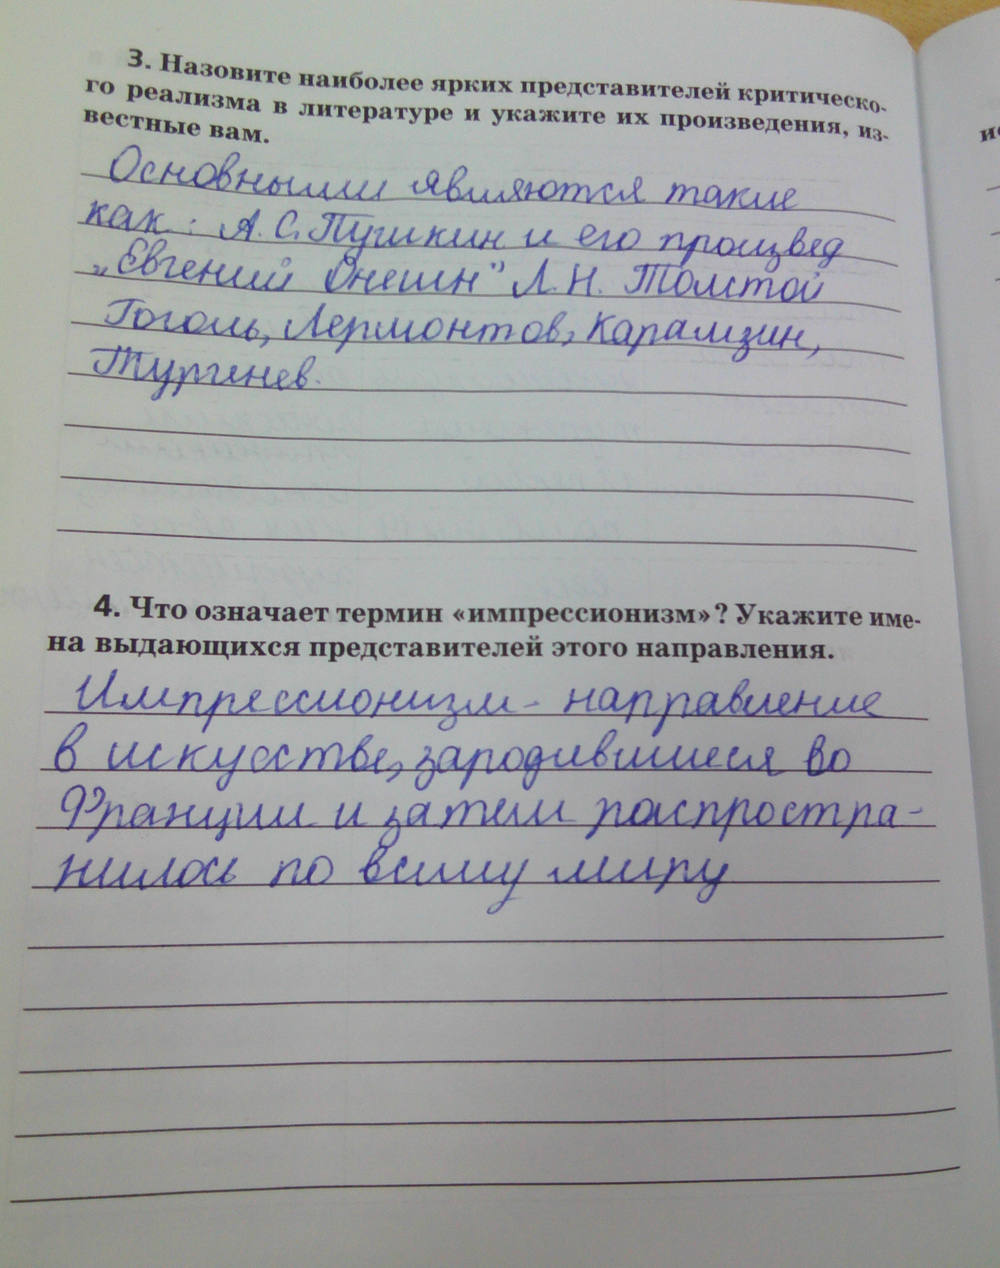 3. Назовите наиболее ярких представителей критическо-
го реализма в литературе и укажите их произведения, из-
вестные вам.
Основными являются такие
как: А.С. Пушкин и его произвед
„Евгений Онегин" Л.Н. Толстой
Гоголь, Лермонтов, Карамзин,
Тургенев.
4. Что означает термин «импрессионизм»? Укажите име-
на выдающихся представителей этого направления.
Импрессионизм - направление
в искусстве, зародившиеся во
Франции и затем распростра-
нилось по всему миру